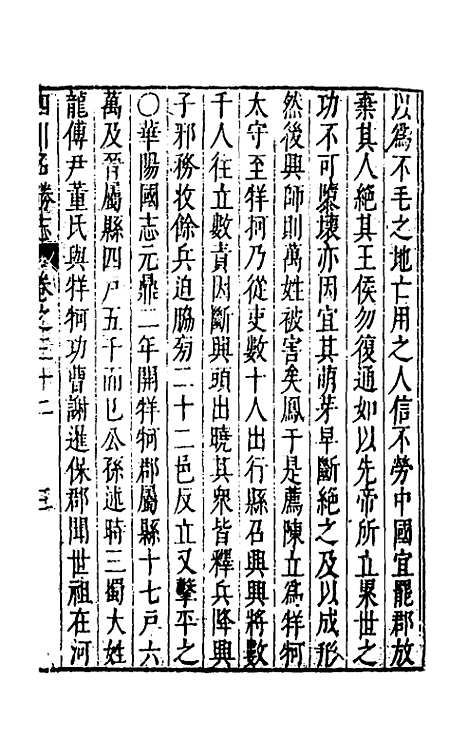 以爲不毛之地亡用之人信不勞中國宜罷郡放
棄其人絕其王侯勿復通如以先帝所立累世之
功不可隳壞亦因宜其萌芽早斷絕之及以成形
然後興師則萬姓被害矣鳳于是薦陳立爲牂牁
太守至牂柯乃從吏數十人出行縣召興興將數
千人往立數責因斷興頭出曉其衆皆釋兵降興
子邪務收餘兵迫脇旁二十二邑反立又擊平之
○華陽國志元鼎二年開牂柯郡屬縣十七戶六
萬及晉屬縣四戶五千而已公孫述時三蜀大姓
龍傅尹董氏與牂牁功曹謝暹保郡聞世祖在河
四川名勝志 卷之三十二 三